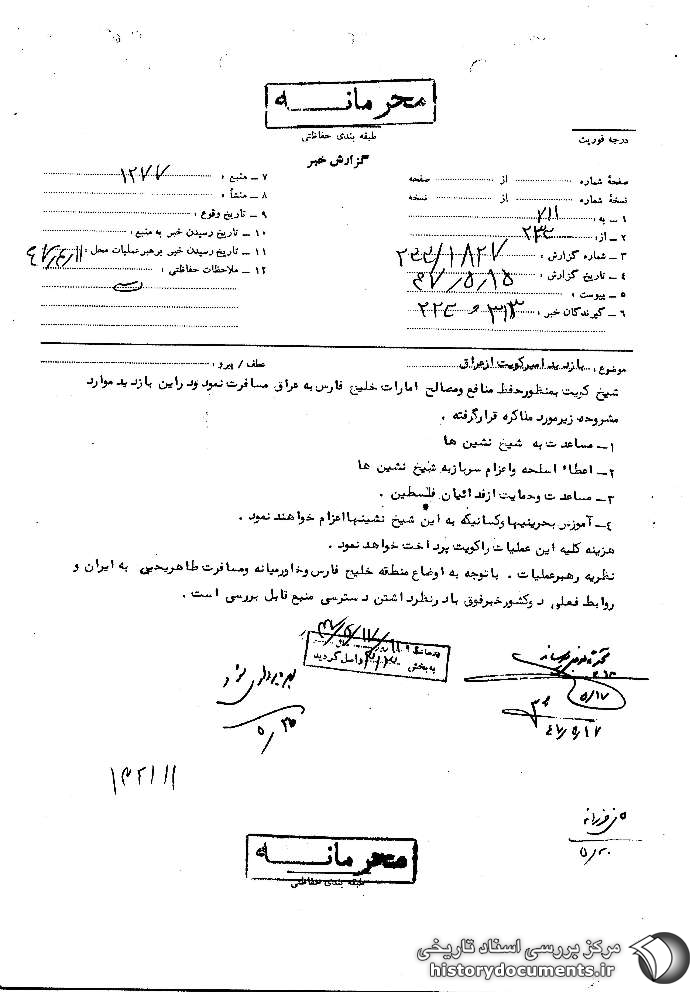 محرمانه
طبقه بندی حفاظتی
درجه فوریت
گزارش خبر
صفحهٔ شماره از صفحه
نسخهٔ شماره از نسخه
۱ ـ به : ۷۱۱
۲ ـ از :
۳ ـ شماره گزارش :
۴ ـ تاریخ گزارش : ۴۷/۵/۱۵
۵ ـ پیوست :
۶ ـ گیرندگان خبر : ۳۱۳ و
۷ ـ منبع : ۱۲۷۷
۸ ـ منشأ :
۹ ـ تاریخ وقوع :
۱۰ ـ تاریخ رسیدن خبر به منبع :
۱۱ ـ تاریخ رسیدن خبر برهبر عملیات محل :
۱۲ ـ ملاحظات حفاظتی :
موضوع : بازدید امیر کویت از عراق
عطف / پیرو :
شیخ کویت بمنظور حفظ منافع ومصالح امارات خلیج فارس به عراق مسافرت نمود ودر این بازدید موارد
مشروحه زیر مورد مذاکره قرار گرفته .
۱ـ مساعدت به شیخ نشین ها
۲ـ اعطاء اسلحه واعزام سرباز به شیخ نشین ها
۳ـ مساعدت وحمایت از فدائیان فلسطین .
٤ـ آموزش بحرینیها وکسانیکه به این شیخ نشینها اعزام خواهند نمود .
هزینه کلیه این عملیات را کویت پرداخت خواهد نمود .
نظریه رهبر عملیات . با توجه به اوضاع منطقه خلیج فارس وخاورمیانه ومسافرت طاهر یحیی به ایران و
روابط فعلی دو کشور خبر فوق با در نظر داشتن دسترسی منبع قابل بررسی است .
به بخش واصل گردید
۵/۱۷
۴۷/۵/۱۷
محرمانه
طبقه بندی حفاظتی
مرکز بررسی اسناد تاریخی
historydocuments.ir